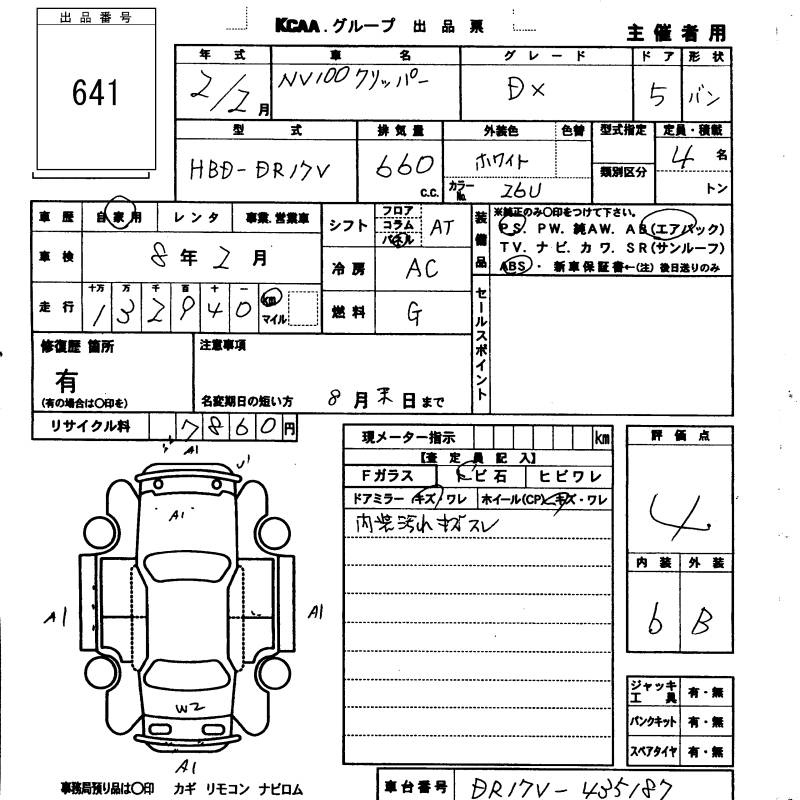 出品番号
641
KCAA.グループ 出品票
主催者用
年式 車名 グレード ドア 形状
2/2月 NV100クリッパー DX 5 バン
型式 排気量 外装色 色替 型式指定 定員・積載
HBD-DR17V 660 c.c. ホワイト 類別区分 4名
カラーNo. 26U トン
車歴 自家用 レンタ 事業、営業車
シフト フロア コラム パネル AT
装備品
※純正のみ〇印をつけて下さい。
PS. PW. 純AW. AB(エアバック)
TV. ナビ. カワ. SR(サンルーフ)
ABS・ 新車保証書←(注)後日送りのみ
車検 8年2月
冷房 AC
走行 十万 万 千 百 十 一
132940 km マイル
燃料 G
セールスポイント
修復歴 箇所 注意事項
有
(有の場合は〇印を) 名変期日の短い方 8月末日まで
リサイクル料 7860円
現メーター指示 km
評価点
【査定員記入】
Fガラス トビ石 ヒビワレ
ドアミラー キズ・ワレ ホイール(CP) キズ・ワレ
4
内装汚れキズスレ
内装 外装
6 B
A1
U1
A1
A1
A1
W2
A1
ジャッキ工具 有・無
パンクキット 有・無
スペアタイヤ 有・無
事務局預り品は〇印 カギ リモコン ナビロム
車台番号 DR17V-435187